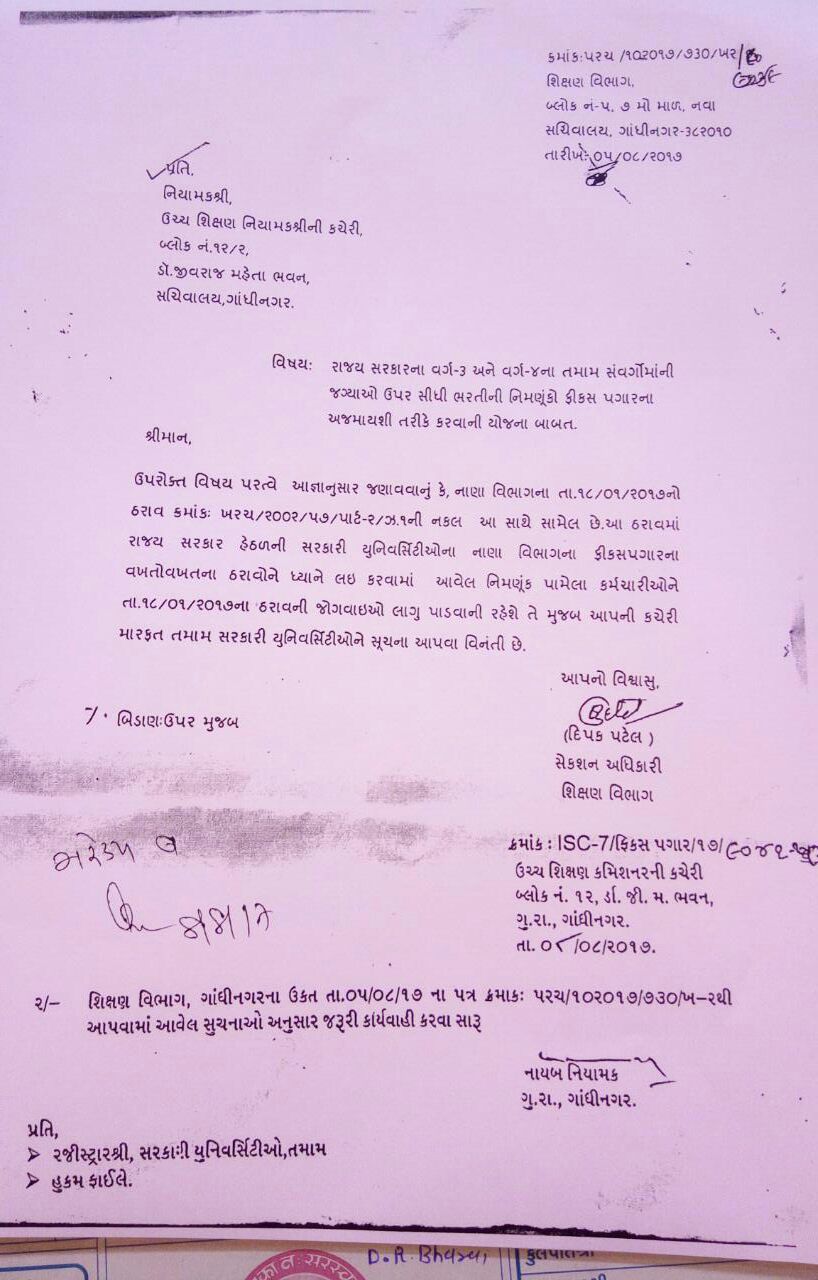 ક્રમાંક:પરચ /૧૦૨૦૧૭/૭૩૦/ખર/
શિક્ષણ વિભાગ,
બ્લોક નં-૫, ૭ મો માળ, નવા
સચિવાલય, ગાંધીનગર-૩૮૨૦૧૦
તારીખ:-૦૫/૦૮/૨૦૧૭
પ્રતિ,
નિયામકશ્રી,
ઉચ્ચ શિક્ષણ નિયામકશ્રીની કચેરી,
બ્લોક નં.૧૨/૨,
ડૉ.જીવરાજ મહેતા ભવન,
સચિવાલય,ગાંધીનગર.
વિષય: રાજય સરકારના વર્ગ-૩ અને વર્ગ-૪ના તમામ સંવર્ગોમાંની
જગ્યાઓ ઉપર સીધી ભરતીની નિમણૂંકો ફીકસ પગારના
અજમાયશી તરીકે કરવાની યોજના બાબત.
શ્રીમાન,
ઉપરોક્ત વિષય પરત્વે આજ્ઞાનુસાર જણાવવાનું કે, નાણા વિભાગના તા.૧૮/૦૧/૨૦૧૭નો
ઠરાવ ક્રમાંકઃ ખરચ/૨૦૦૨/૫૭/પાર્ટ-૨/ઝ.૧ની નકલ આ સાથે સામેલ છે.આ ઠરાવમાં
રાજય સરકાર હેઠળની સરકારી યુનિવર્સિટીઓના નાણા વિભાગના ફીકસપગારના
વખતોવખતના ઠરાવોને ધ્યાને લઇ કરવામાં આવેલ નિમણૂંક પામેલા કર્મચારીઓને
તા.૧૮/૦૧/૨૦૧૭ના ઠરાવની જોગવાઇઓ લાગુ પાડવાની રહેશે તે મુજબ આપની કચેરી
મારફત તમામ સરકારી યુનિવર્સિટીઓને સૂચના આપવા વિનંતી છે.
આપનો વિશ્વાસુ,
બિડાણ:ઉપર મુજબ
(દિપક પટેલ )
સેકશન અધિકારી
શિક્ષણ વિભાગ
ક્રમાંક : ISC-7/ફિકસ પગાર/૧૭/
ઉચ્ચ શિક્ષણ કમિશનરની કચેરી
બ્લોક નં. ૧૨, ર્ડા. જી. મ. ભવન,
ગુ.રા., ગાંધીનગર.
તા. ૦૮/૦૮/૨૦૧૭.
૨/– શિક્ષણ વિભાગ, ગાંધીનગરના ઉકત તા.૦૫/૦૮/૧૭ ના પત્ર ક્રમાકઃ પરચ/૧૦૨૦૧૭/૭૩૦/ખ–૨થી
આપવામાં આવેલ સુચનાઓ અનુસાર જરૂરી કાર્યવાહી કરવા સારૂ
નાયબ નિયામક
ગુ.રા., ગાંધીનગર.
પ્રતિ,
➢ રજીસ્ટ્રારશ્રી, સરકારી યુનિવર્સિટીઓ,તમામ
➢ હુકમ ફાઈલે.
D.R. Bhavsar